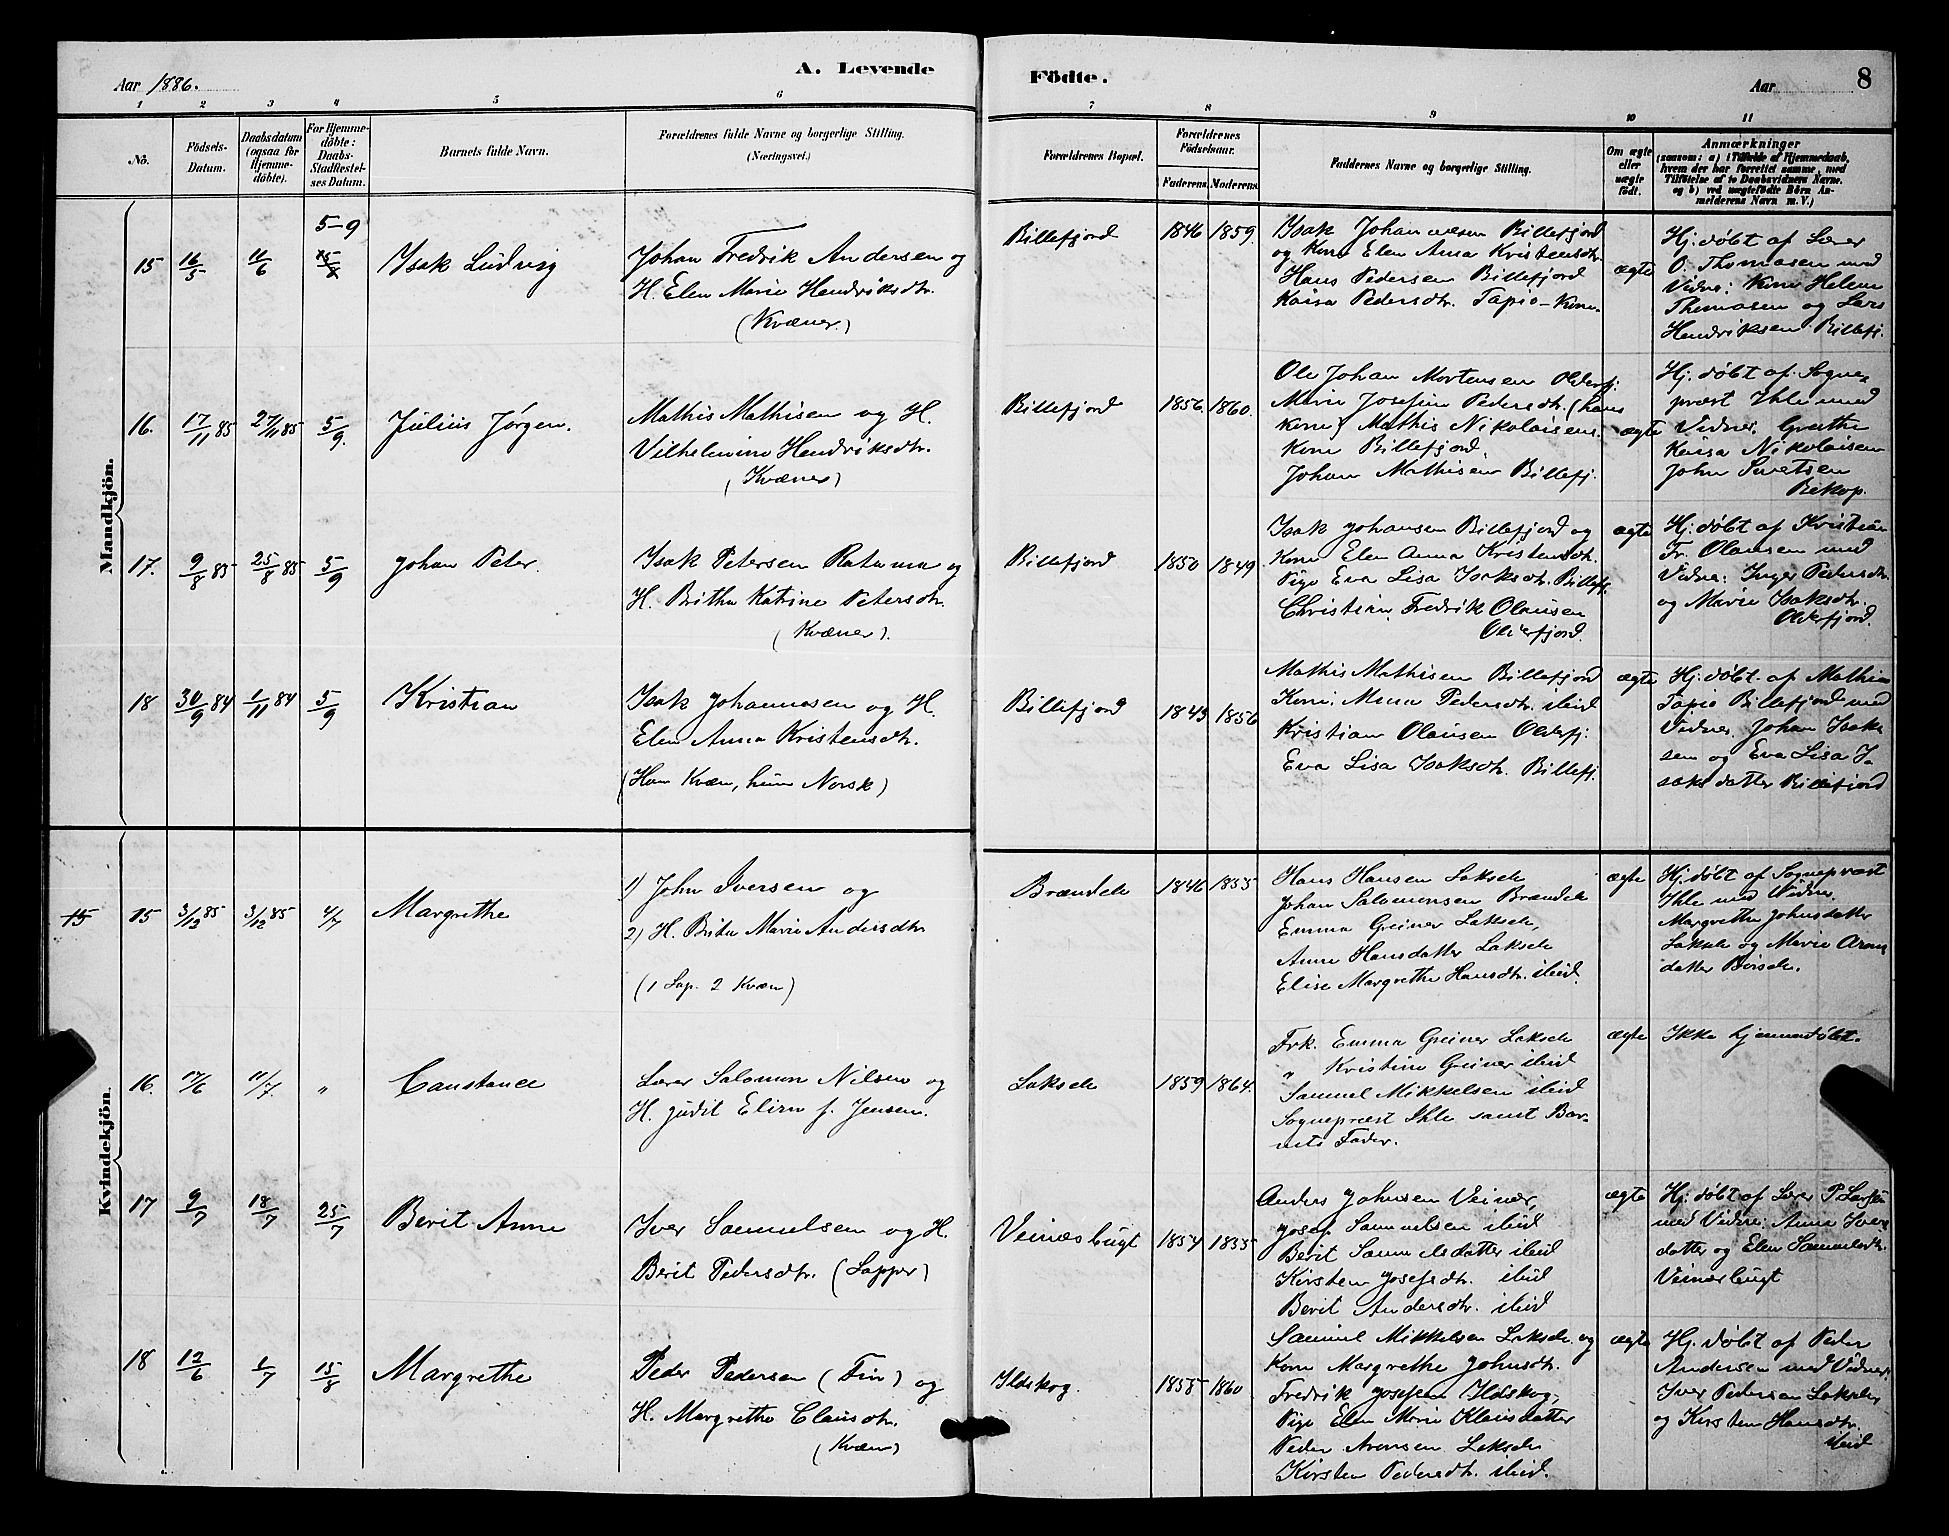 Aar 1886.
A. Levende Födte.
Aar 8
1 2 3 4 5 6 7 8 9 10 11
No.
Födsels-Datum.
Daabsdatum (ogsaa for Hjemme-döbte).
For Hjemme-döbte: Daabs-Stadfæstel-ses Datum.
Barnets fulde Navn.
Forældrenes fulde Navne og borgerlige Stilling.
(Næringsvei.)
Forældrenes Bopæl.
Forældrenes Födselsaar.
Faderens. Moderens.
Faddernes Navne og borgerlige Stilling.
Om ægte eller uægte födt.
Anmærkninger
(saasom: a) i Tilfælde af Hjemmedaab,
hvem der har forrettet samme, med
Tilföielse af to Daabsvidners Navne.
og b) ved uægtefödte Börn An-
melderens Navn m. V.)
Mandkjön.
5-9
15 16/5 11/6
Isak Ludvig
Johan Fredrik Andersen og
H. Elen Marie Hendriksdtr.
(Kvæner)
Billefjord 1846 1859.
Isak Johannesen Billefjord
og Kone Elen Anna Kristensdtr.
Hans Pedersen Billefjord
Kaisa Pedersdtr. Tapio-Kone.
ægte
Hj. døbt af Lærer
O. Thomasen med
Vidne: Kone Helene
Thomasen og Lars
Hendriksen Billefj.
16. 17/11 85 27/11 85 5/9.
Julius Jørgen.
Mathis Mathisen og H.
Vilhelmine Hendriksdtr.
(Kvæner)
Billefjord 1856. 1860.
Ole Johan Mortensen Olderfj.
Marie Josefine Pedersdtr. (hans
kone) Mathis Nikolaisens
Kone Billefjord,
Johan Mathisen Billefj.
ægte
Hj. døbt af Sogne-
præst Ihle med
Vidner. Grethe
Kaisa Nikolaisen
John Sivetsen
17. 9/8 85 25/8 85 5/9
Johan Peter.
Isak Petersen Ratama og
H. Britha Katrine Petersdtr.
(Kvæner).
Billefjord 1850 1849
Isak Johansen Billefjord og
Kone Elen Anna Kristensdtr.
Pige Eva Lisa Isaksdtr. Billefj.
Christian Fredrik Olausen
Olderfjord.
ægte
Hj. døbt af Kristian
Fr. Olausen med
Vidne: Inger Pedersdtr.
og Marie Isaksdtr.
Olderfjord.
18 30/9 84 1/11 84 5/9
Kristian
Isak Johannesen og H.
Elen Anna Kristensdtr.
(Han Kvæn, hun Norsk)
Billefjord 1849 1856
Mathis Mathisen Billefjord
Kone. Mina Pedersdtr. ibid
Kristian Olausen Olderfj.
Eva Lisa Isaksdtr. Billefj.
ægte
Hj. døbt af Mathis
Tapio Billefjord med
Vidner, Johan Isak-
sen og Eva Lisa I-
saksdatter Billefjord
Kvindekjön.
15 15 3/12 85 3/12 85 4/7
Margrethe
1) John Iversen og
2) H. Brita Marie Andersdtr.
(1 Lap. 2 Kvæn)
Brændelv 1846 1855
Hans Hansen Lakselv
Johan Salomonsen Brændelv
Emma Greiner Lakselv,
Anne Hansdatter Lakselv
Elise Margrethe Hansdtr. ibid.
ægte
Hj. døbt af Sognepræst
Ihle med Vidner
Margrethe Johnsdatter
Lakselv og Marie Aron
datter Børselv.
16. 17/6 11/7. "
Constance
Lærer Salomon Nilsen og
H. Judit Elisa f. Jensen.
Lakselv 1859 1864.
Frk. Emma Greiner Lakselv
" Kristine Greiner ibid
Samuel Mikkelsen ibid
Sognepræst Ihle samt Bar-
nets Fader.
ægte
Ikke hjemmedøbt.
17 9/7 18/7 25/7
Berit Anne
Iver Samuelsen og H.
Berit Pedersdtr. (Lapper)
Veinæsbugt 1854 1855
Anders Johnsen Veinæs,
Josef Samuelsen ibid
Berit Samuelsdatter ibid
Kirsten Josefsdtr. ibid
Berit Andersdtr. ibid
ægte
Hj. døbt af Lærer P. Larsen
med Vidne: Anne Ivers
datter og Elen Samuelsdtr.
Veinæsbugt
18 12/6 1/7 15/8
Margrethe
Peder Pedersen (Fin) og
H. Margrethe Clausdtr.
(Kvæn)
Ildskog. 1858 1860
Samuel Mikkelsen Lakselv og
Kone Margrethe Johnsdtr.
Fredrik Josefsen Ildskog,
Pige Elen Marie Klausdatter
Peder Aronsen Lakselv
Kirsten Pedersdtr. ibid.
ægte
Hj. døbt af Peder
Andersen med Vidner.
Iver Pedersen Lakselv
og Kirsten Hansdtr.
ibid